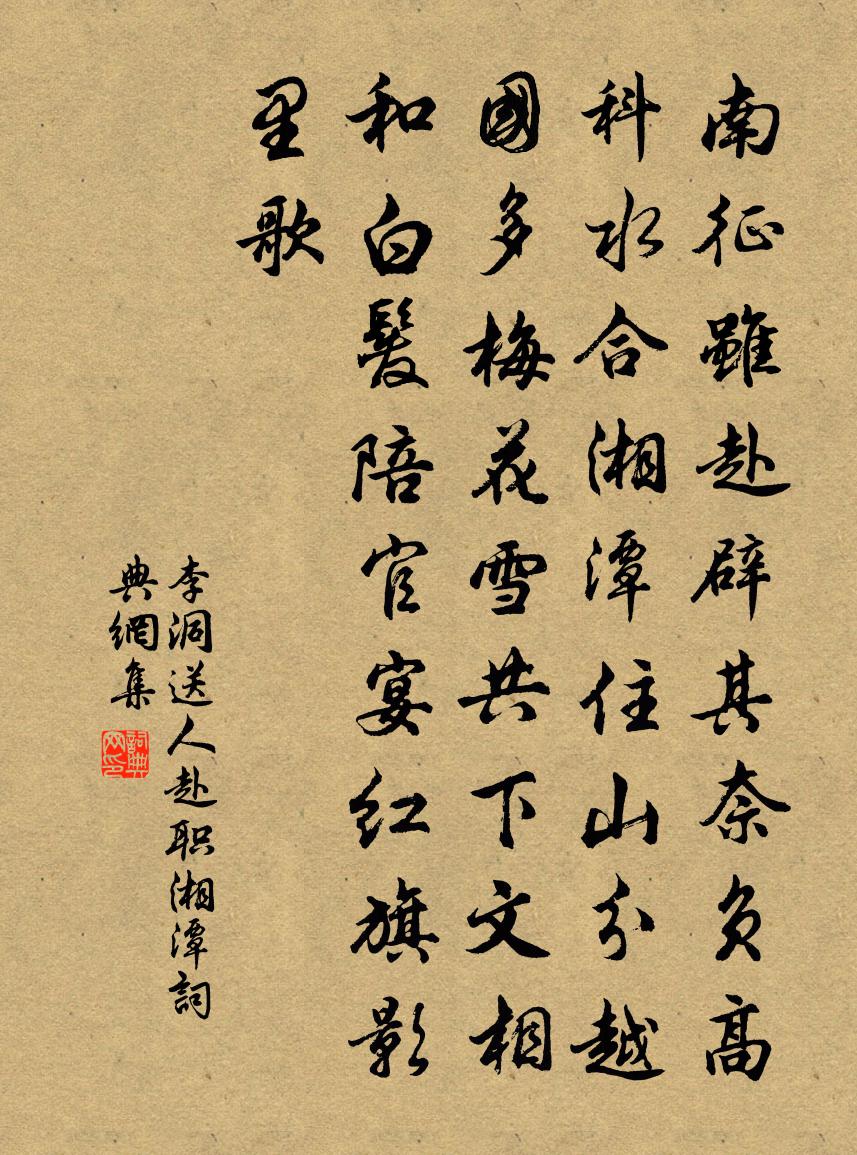 南征雖赴辟其奈負高
科水合湘潭住山分越
國多梅花雪共下文相
和白髮陪官宴红旗影
里歌
李洞送人赴职湘潭詞
典網集
詞典
网印